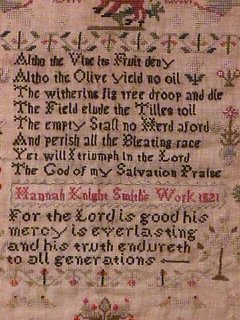 Altho the Vine its Fruit deny
Altho the Olive yield no oil
The withering fig tree droop and die
The Field elude the Tillers toil
The empty Stall no Herd aford
And perish all the Bleating race
Yet will I triumph in the Lord
The God of my Salvation Praise
Hannah Knight Smiths Work 1821
For the Lord is good his
mercy is everlasting
and his truth endureth
to all generations